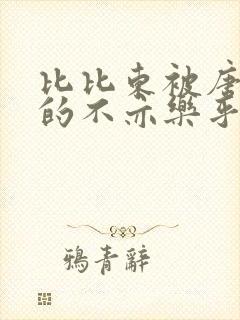 比比东被唐
的不亦樂乎
鴉青辭